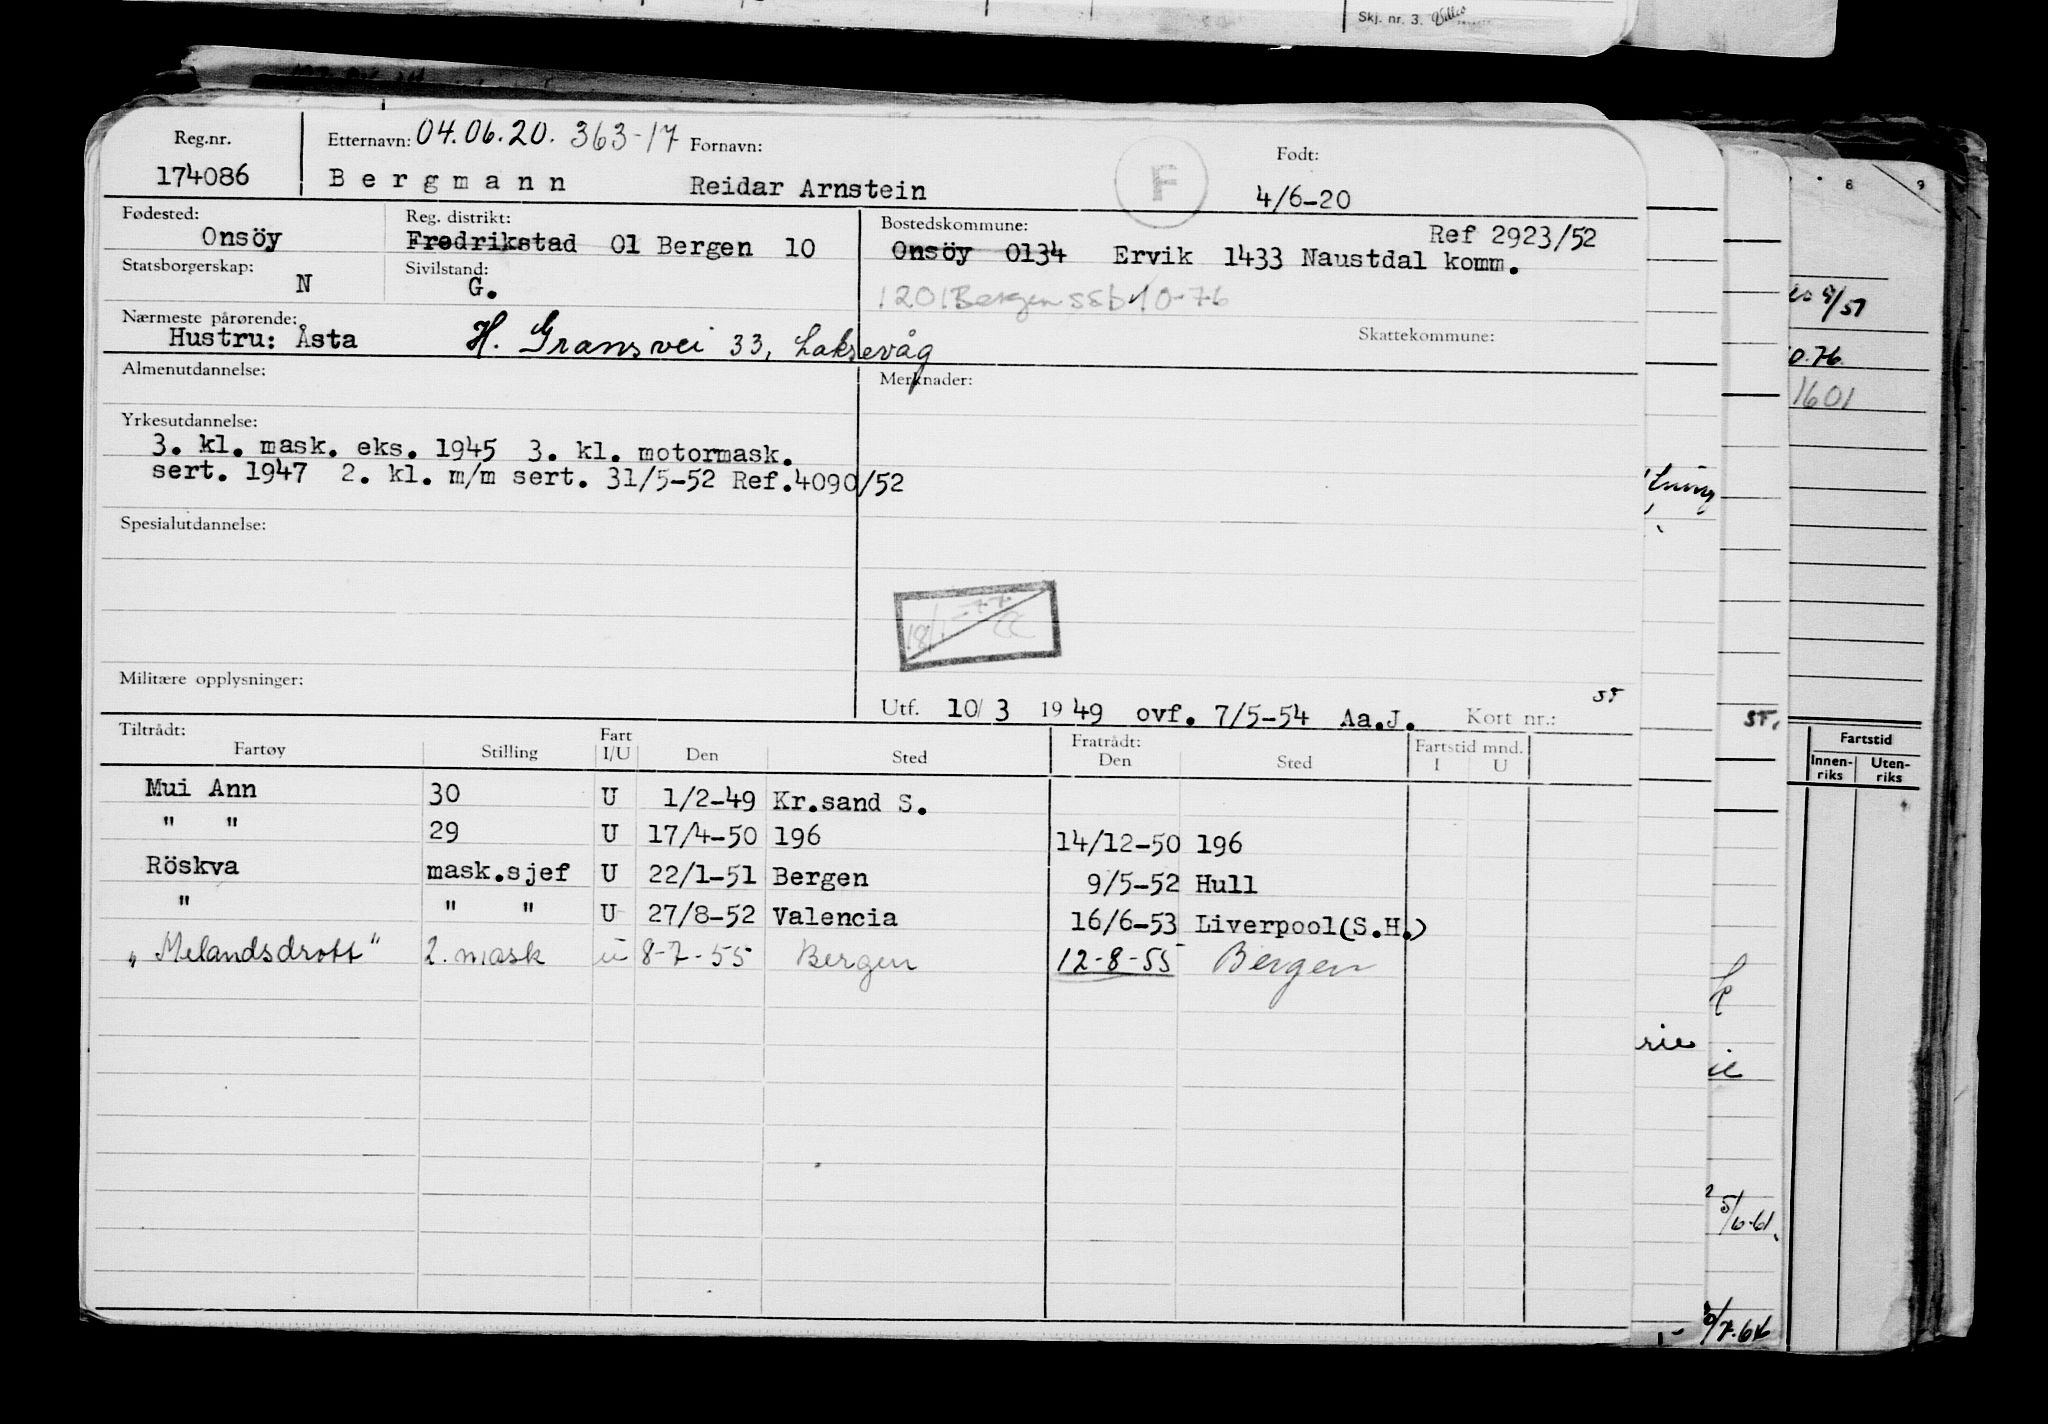 Skj. nr. 3.
Reg.nr. Etternavn: 04.06.20. 363-17 Fornavn: F Født:
174086 Bergmann Reidar Arnstein 4/6-20
Fødested: Reg. distrikt: Bostedskommune: Ref 2923/52
Onsöy Fredrikstad 01 Bergen 10 Onsöy 0134 Ervik 1433 Naustdal komm.
Statsborgerskap: Sivilstand:
N G. 1201 Bergen ssb 10-76
Nærmeste pårørende: Skattekommune:
Hustru: Åsta H. Gransvei 33, Laksevåg
Almenutdannelse: Merknader:
Yrkesutdannelse:
3. kl. mask. eks. 1945 3. kl. motormask.
sert. 1947 2. kl. m/m sert. 31/5-52 Ref.4090/52
Spesialutdannelse:
Militære opplysninger:
Utf. 10/ 3 19 49 ovf. 7/5-54 Aa.J. Kort nr.:
Tiltrådt: Fart Fratrådt: Fartstid mnd.
Fartøy Stilling I/U Den Sted Den Sted I U
Mui Ann 30 U 1/2-49 Kr.sand S.
" " 29 U 17/4-50 196 14/12-50 196
Röskva mask.sjef U 22/1-51 Bergen 9/5-52 Hull
" " " U 27/8-52 Valencia 16/6-53 Liverpool(S.H.)
„Melandsdrott" 2. mask u 8-7-55 Bergen 12-8-55 Bergen
8 9
1601
Fartstid
Innen- Uten-
riks riks